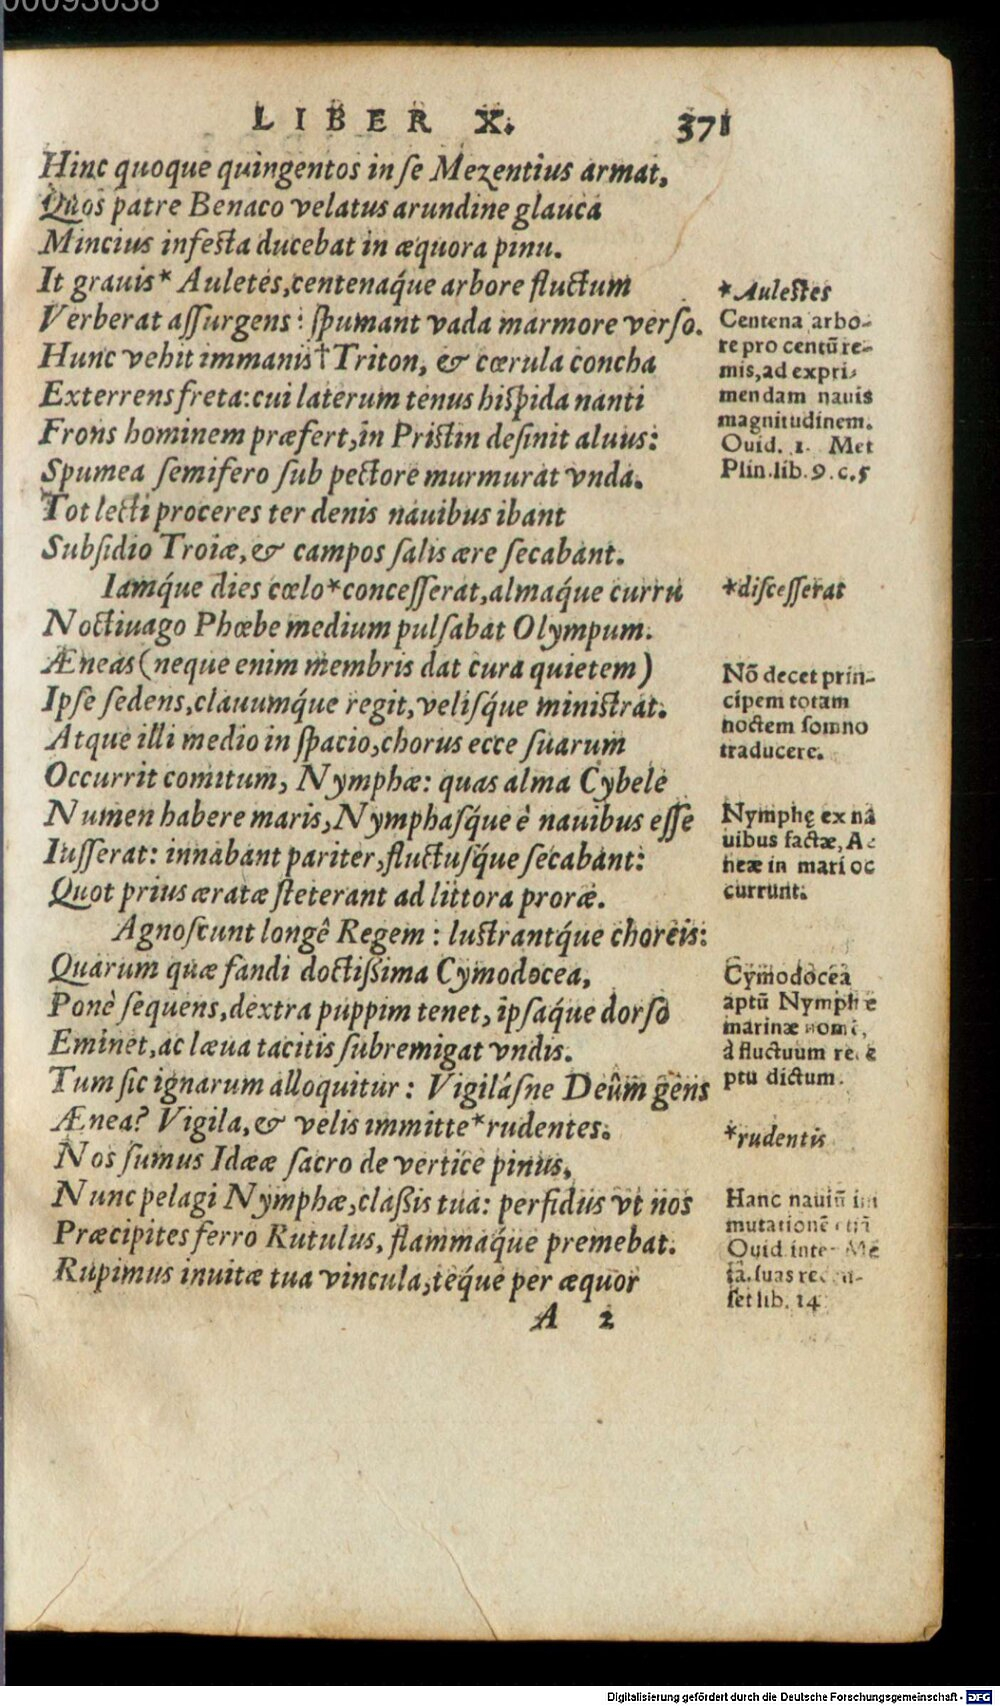 00093038
LIBER X. 371
Hinc quoque quingentos in ſe Mezentius armat,
Quos patre Benaco velatus arundine glauca
Mincius infeſta ducebat in æquora pinu.
It grauis* Auletes, centenaq́ue arbore fluctum
Verberat aſſurgens: ſpumant vada marmore verſo.
Hunc vehit immanis† Triton, & cœrula concha
Exterrens freta: cui laterum tenus hiſpida nanti
Frons hominem præfert, in Priſtin deſinit aluus:
Spumea ſemifero ſub pectore murmurat vnda.
Tot lecti proceres ter denis nauibus ibant
Subſidio Troiæ, & campos ſalis ære ſecabant.
Iamq́ue dies cœlo* conceſſerat, almaq́ue curru
Noctiuago Phœbe medium pulſabat Olympum.
Æneas (neque enim membris dat cura quietem)
Ipſe ſedens, clauumq́ue regit, veliſq́ue miniſtrat.
Atque illi medio in ſpacio, chorus ecce ſuarum
Occurrit comitum, Nymphæ: quas alma Cybele
Numen habere maris, Nymphaſq́ue è nauibus eſſe
Iuſſerat: innabant pariter, fluctuſq́ue ſecabant:
Quot prius æratæ ſteterant ad littora proræ.
Agnoſcunt longê Regem: luſtrantq́ue choreis:
Quarum quæ fandi doctißima Cymodocea,
Ponè ſequens, dextra puppim tenet, ipſaq́ue dorſo
Eminet, ac læua tacitis ſubremigat vndis.
Tum ſic ignarum alloquitur: Vigilaſ́ne Deûm gens
Ænea? Vigila, & velis immitte* rudentes.
Nos ſumus Idææ ſacro de vertice pinus,
Nunc pelagi Nymphæ, claßis tua: perfidus vt nos
Præcipites ferro Rutulus, flammaq́ue premebat.
Rupimus inuitæ tua vincula, teq́ue per æquor
A 2
*Auleſtes
Centena arbo-
re pro centū re-
mis, ad expri-
mendam nauis
magnitudinem.
Ouid. 1. Met
Plin. lib. 9. c. 5
*diſceſſerat
Nō decet prin-
cipem totam
noctem ſomno
traducere.
Nymphę ex na
uibus factæ, Æ
neæ in mari oc
currunt.
Cymodocea
aptū Nymphæ
marinæ
à fluctuum
ptu dictum.
*rudentis
Hanc nauiū im
mutationē
Ouid. inter Me
ta. ſuas recen-
ſet lib. 14
Digitalisierung gefördert durch die Deutsche Forschungsgemeinschaft - DFG